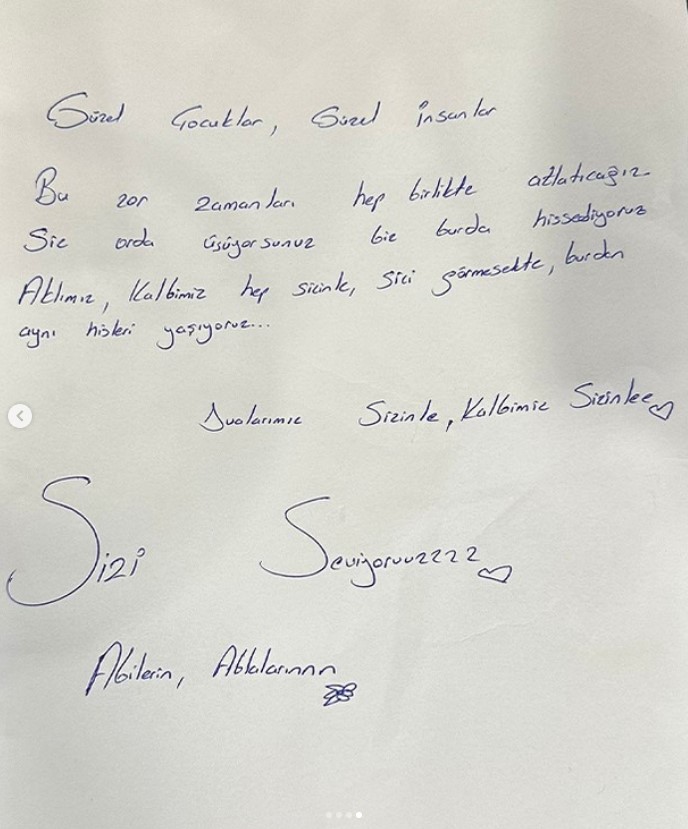 Güzel Çocuklar, Güzel İnsanlar
Bu zor zamanları hep birlikte atlatıcağız
Siz orda üşüyorsunuz biz burda hissediyoruz
Aklımız, Kalbimiz hep sizinle, sizi görmesekte, burdan
aynı hisleri yaşıyoruz...
Dualarımız Sizinle, Kalbimiz Sizinlee
Sizi Seviyoruuzzzz
Abilerin, Ablalarınnn